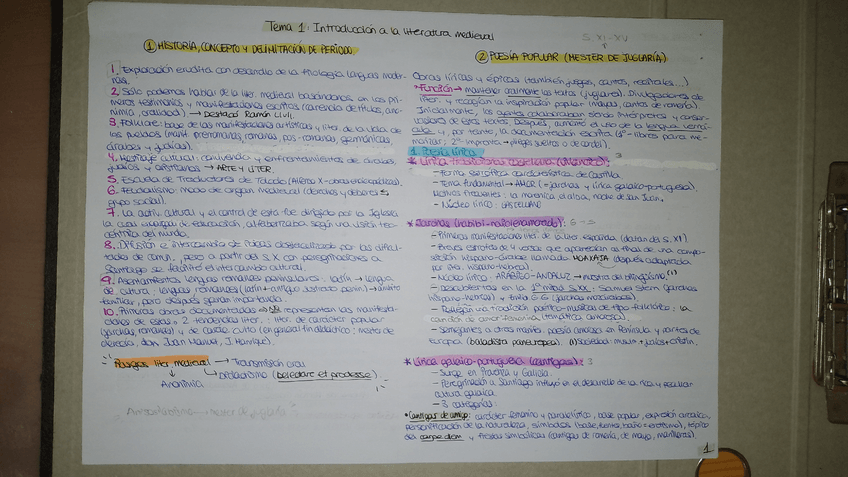 Tema 1: Introducción a la literatura medieval
① HISTORIA, CONCEPTO Y DELIMITACIÓN DE PERÍODO.
1. Exploración erudita con desarrollo de la filología (lenguas mater-
nas.
2. Sólo podemos hablar de la liter. medieval basándonos en los pri-
meros testimonios y manifestaciones escritas (carencia de títulos, anó-
nimia, oralidad) → Destacó Ramón Llull.
3. Folklore: base de las manifestaciones artísticas y liter. de la vida de
los pueblos
árabes y judíos).
4. Mestizaje cultural: convivencia y enfrentamientos de árabes,
judíos y cristianos → ARTE Y LITER.
5. Escuela de Traductores de Toledo (Alfonso X - obras enciclopédicas).
6. Feudalismo: modo de organ. medieval (derechos y deberes
grupo social).
7. La activ. cultural y el control de esta fue dirigido por la Iglesia
la cual educación, alfabetizaba según una visión teo-
céntrica del mundo.
8. Difusión e intercambio de ideas obstaculizado por las dificul-
tades de comun., pero a partir del S. X con peregrinaciones a
Santiago se facilitó el intercambio cultural.
9. Asentamiento lenguas romances peninsulares: latín → lengua
de cultura, lenguas romances (latín + antiguo sustrato penin.) → ámbito
familiar, pero después ganan importancia.
10. Primeras obras documentadas representan las manifesta-
ciones de estas: 2 tendencias liter.: liter. de carácter popular
(jarchas, romances) y de carác. culto (en general fin didáctico: mester de
clerecía, don Juan Manuel, J. Manrique).
Rasgos liter. medieval → Transmisión oral
→ Didactismo (deleitare et prodesse).
Anonimia
→ mester de juglaría
S. XI-XV
② POESÍA POPULAR (MESTER DE JUGLARÍA)
Obras líricas y épicas (también juegos, cantos, recitales...)
*Función → mantener oralmente los textos (juglares). Divulgadores de
liter. y recogían la inspiración popular (mayas, cantos de romería).
Inicialmente, los agentes colaboraban siendo intérpretes y conser-
vadores de estos textos. Después, aumentó el uso de la lengua verná-
cula y, por tanto, la documentación escrita (1º- libros para me-
morizar; 2º- imprenta → pliegos sueltos o de cordel).
1. Poesía lírica
* Lírica tradicional castellana (villancico): 3
- Forma estrófica característica de Castilla
- Tema fundamental → AMOR (= jarchas y lírica galaico-portuguesa).
Motivos frecuentes: la morenica, el alba, noche de San Juan,
- Núcleo lírico: CASTELLANO
* Jarchas (habibi-amado/enamorado):
- Primeras manifestaciones liter. de la liter. española (datan del S. XI)
- Breves estrofas de 4 versos que aparecían al final de una compo-
sición hispano-árabe llamada MOAXAJA (después adaptada
por liter. hispano-hebrea).
- Núcleo lírico: ARÁBIGO-ANDALUZ → muestra del bilingüismo (1)
- Descubiertas en la 1ª mitad S. XX: Samuel Stern (jarchas
hispano-hebreas) y Emilio G.G (jarchas mozárabes).
- Reflejan una tradición poético-musical de tipo folklórico: la
canción de amor femenina (temática amorosa).
- Semejantes a otras manifes. poesía amorosa en Península y partes de
Europa (baladística paneuropea). (1) sociedad: musulm. + judíos + cristian.
* Lírica galaico-portuguesa (cantigas): 3
- Surge en Provenza y Galicia.
- Peregrinación a Santiago influyó en el desarrollo de la rica y peculiar
cultura galaica.
- 3 categorías:
*Cantigas de amigo: carácter femenino y paralelístico, base popular, expresión arcaica,
personificación de la naturaleza, símbolos (baile, fuentes, baño = erotismo), tópico
del carpe diem y fiestas simbólicas (cantigas de romería, de mayo, marineras).
1